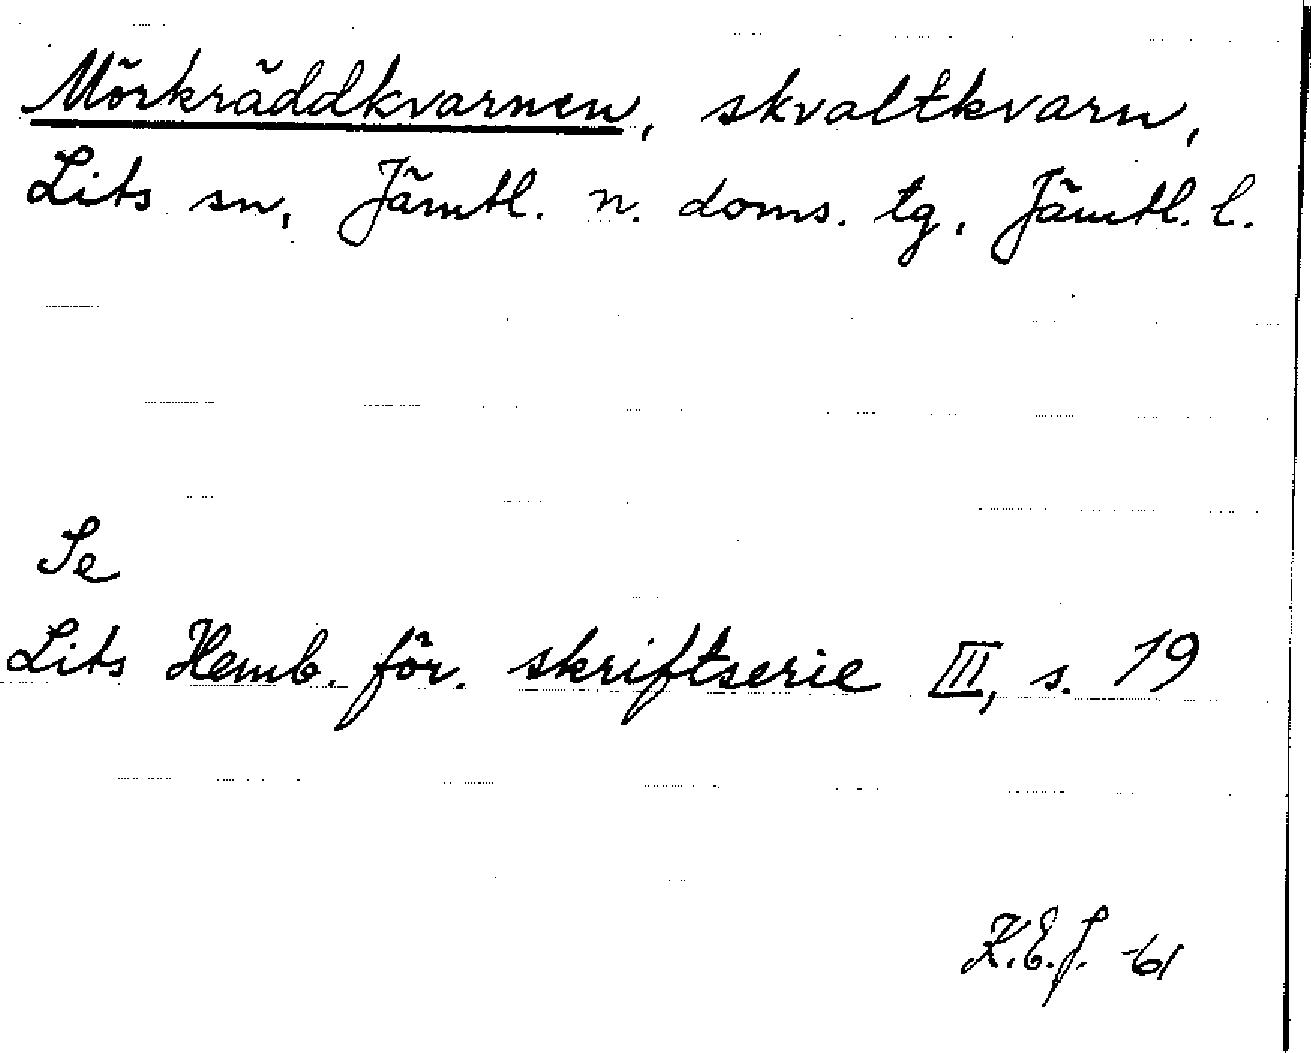 Mörkräddkvarnen, skvaltkvarn,
Lits sn, Jämtl. n. doms. tg, Jämtl. l.
Se
Lits Hemb. för. skriftserie III, s. 19
K.E.J. -61